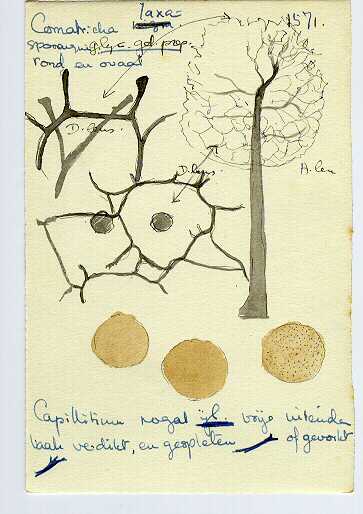 Comatricha laxa= 1571.
sporangium glyc. gel. prep.
rond en ovaal
D. lens.
D. lens.
A. len
Capillitium nogal ijl. vrije uiteinden
vaak verdikt, en gespleten of gevorkt